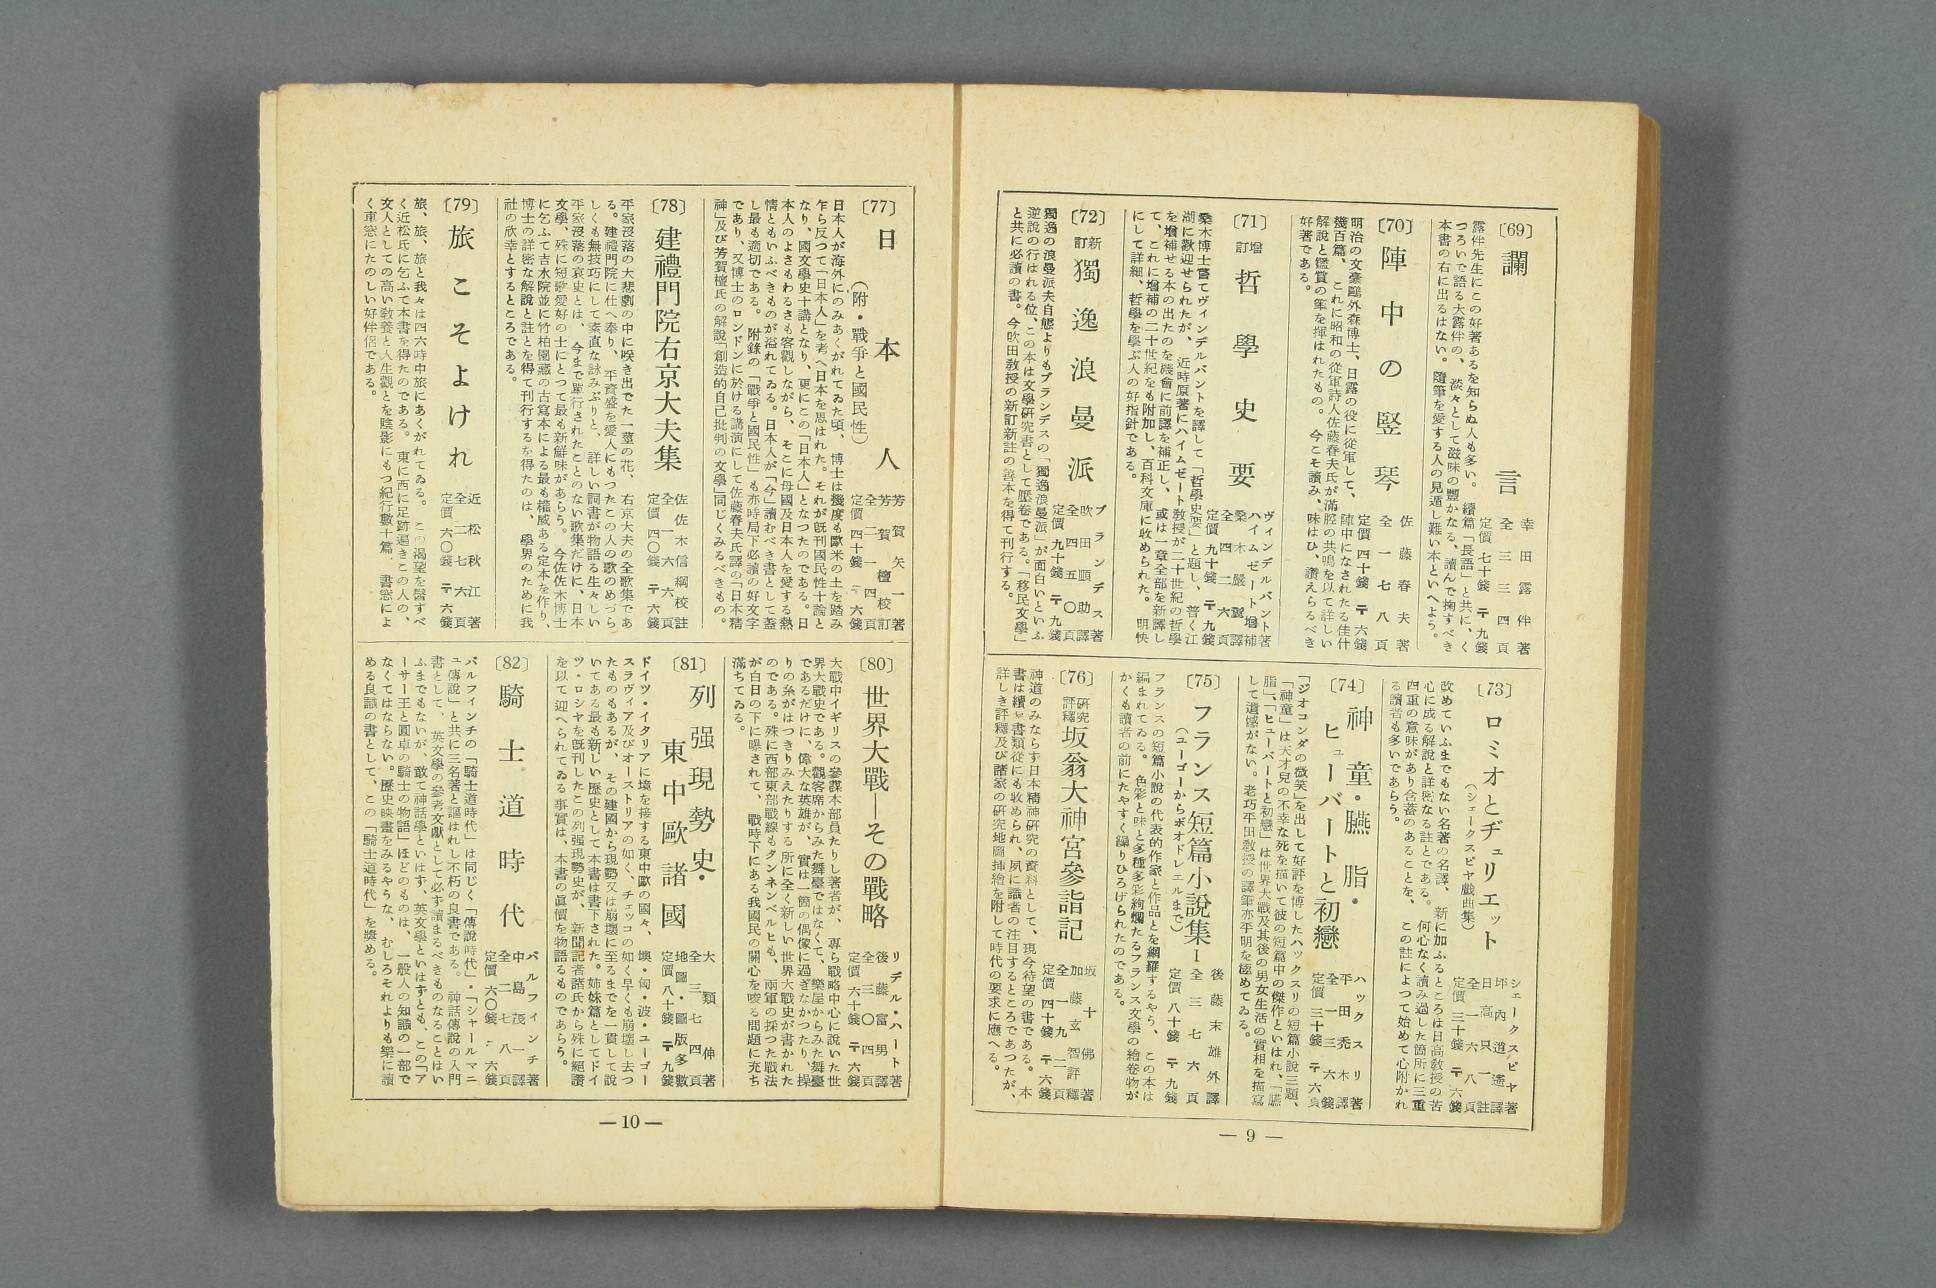 [69] 讕言
幸田露伴著
全三三四頁
定價七十錢 〒九錢
露伴先生にこの好著あるを知らぬ人も多い。續篇「長語」と共に、く
つろいで語る大露伴の、淡々として滋味の豐かなる、讀んで掬すべき
本書の右に出るはない。隨筆を愛する人の見遁し難い本といへよう。
[70] 陣中の竪琴
佐藤春夫著
全一七八頁
定價四十錢 〒六錢
明治の文豪鷗外森博士、日露の役に從軍して、陣中になされたる佳什
幾百篇、これに昭和の從軍詩人佐藤春夫氏が滿腔の共鳴を以て詳しい
解說と鑑賞の筆を揮はれたもの。今こそ讀み、味はひ、讚えらるべき
好著である。
[71] 增訂 哲學史要
ヴィンデルバント著
ハイムゼート增補
桑木嚴翼譯
全四二六頁
定價九十錢 〒九錢
桑木博士嘗てヴィンデルバントを譯して「哲學史要」と題し、普く江
湖に歡迎せられたが、近時原著にハイムゼート敎授が二十世紀の哲學
を增補せる本の出たのを機會に前譯を補正し、或は一章全部を新譯し
て、これに增補の二十世紀をも附加し、百科文庫に收められた。明快
にして詳細、哲學を學ぶ人の好指針である。
[72] 新訂 獨逸浪曼派
ブランデス著
吹田順助譯
全四五〇頁
定價九十錢 〒九錢
獨逸の浪曼派夫自態よりもブランデスの「獨逸浪曼派」が面白いといふ
逆說の行はれる位、この本は文學硏究書として壓卷である。「移民文學」
と共に必讀の書。今吹田敎授の新訂新註の善本を得て刊行する。
[73] ロミオとヂュリエット
(シェークスピヤ戲曲集)
シェークスピヤ著
坪內逍遙譯
日高只一註
全一六八頁
定價三十錢 〒六錢
改めていふまでもない名著の名譯、新に加ふるところは日高敎授の苦
心に成る解說と詳密なる註とである。何心なく讀み過した箇所に三重
四重の意味があり含蓄のあることを、この註によつて始めて心附かれ
る讀者も多いであらう。
[74] 神童・臙脂・
ヒューバートと初戀
ハックスリ著
平田禿木譯
全一三六頁
定價三十錢 〒六錢
「ジオコンダの微笑」を出して好評を博したハックスリの短篇小說三題、
「神童」は天才兒の不幸な死を描いて彼の短篇中の傑作といはれ、「臙
脂」、「ヒューバートと初戀」は世界大戰及其後の男女生活の實相を描寫
して遺憾がない。老巧平田敎授の譯筆亦平明を極めてゐる。
[75] フランス短篇小說集Ⅰ
(ユーゴーからボオドレエルまで)
後藤末雄外譯
全三七六頁
定價八十錢 〒九錢
フランスの短篇小說の代表的作家と作品とを網羅するやら、この本は
編まれてゐる。色彩と味と多種多彩絢爛たるフランス文學の繪卷物が
かくも讀者の前にたやすく繰りひろげられたのである。
[76] 硏究評釋 坂翁大神宮參詣記
坂十佛著
加藤玄智評釋
全一九二頁
定價四十錢 〒六錢
神道のみならず日本精神硏究の資料として、現今待望の書である。本
書は續々書類從にも收められ、夙に識者の注目するところであつたが、
詳しき評釋及び諸家の硏究地圖挿繪を附して時代の要求に應へる。
— 9 —
[77] 日本人
(附・戰爭と國民性)
芳賀矢一著
芳賀檀校訂
全二一四頁
定價四十錢 〒六錢
日本人が海外にのみあくがれてゐた頃、博士は幾度も歐米の土を踏み
乍ら反つて「日本人」を考へ日本を思はれた。それが旣刊國民性十論と
なり、國文學史十講となり、更にこの「日本人」となつたのである。日
本人のよさもわるさも客觀しながら、そこに母國及日本人を愛する熱
情ともいふべきものが溢れてゐる。日本人が「今」讀むべき書として蓋
し最も適切である。附錄の「戰爭と國民性」も亦時局下必讀の好文字
であり、又博士のロンドンに於ける講演にして佐藤春夫氏譯の「日本精
神」及び芳賀檀氏の解說「創造的自己批判の文學」同じくみるべきもの。
[78] 建禮門院右京大夫集
佐佐木信綱校註
全一六六頁
定價四〇錢 〒六錢
平家沒落の大悲劇の中に咲き出でた一莖の花、右京大夫の全歌集であ
る。建禮門院に仕へ奉り、平資盛を愛人にもつたこの人の歌のめづら
しくも無技巧にして素直な詠みぶりと、詳しい詞書が物語る生々しい
平家沒落の哀史とは、今まで單行されたことのない歌集だけに、日本
文學、殊に短歌愛好の士にとつて最も新鮮味があらう。今佐佐木博士
に乞ふて吉水院並に竹柏園藏の古寫本による最も權威ある定本を作り、
博士の詳密な解說と註とを得て刊行するを得たのは、學界のために我
社の欣幸とするところである。
[79] 旅こそよけれ
近松秋江著
全二七六頁
定價六〇錢 〒六錢
旅、旅、旅と我々は四六時中旅にあくがれてゐる。この渴望を醫すべ
く近松氏に乞ふて本書を得たのである。東に西に足跡遍きこの人の、
文人としての高い敎養と人生觀とを陰影にもつ紀行數十篇。書窓によ
く車窓にたのしい好伴侶である。
[80] 世界大戰—その戰略
リデル・ハート著
後藤富男譯
全三〇四頁
定價六十錢 〒六錢
大戰中イギリスの參謀本部員たりし著者が、專ら戰略中心に說いた世
界大戰史である。觀客席からみた舞臺ではなくて、樂屋からみた舞臺
であるだけに、偉大な英雄が、實は一箇の偶像に過ぎなかつたり、操
りの糸がはつきりみえたりする所に全く新しい世界大戰史が書かれた
のである。殊に西部東部戰線もタンネンベルヒも、兩軍の採つた戰法
が白日の下に曝されて、戰時下にある我國民の關心を唆る問題に充ち
滿ちてゐる。
[81] 列强現勢史・
東中歐諸國
大類伸著
全三七四頁
地圖・圖版多數
定價八十錢 〒九錢
ドイツ・イタリアに境を接する東中歐の國々、墺・匈・波・ユーゴー
スラヴィア及びオーストリアの如く、チェッコの如く早くも崩壞し去つ
たものもあるが、その建國から現勢又は崩壞に至るまでを一貫して說
いてある最も新しい歷史として本書は書下された。姉妹篇としてドイ
ツ・ロシヤを旣刊したこの列强現勢史が、新聞記者諸氏から殊に絕讚
を以て迎へられてゐる事實は、本書の眞價を物語るものであらう。
[82] 騎士道時代
バルフィンチ著
中島茂一譯
全二七八頁
定價六〇錢 〒六錢
バルフィンチの「騎士道時代」は同じく「傳說時代」・「シャールマニ
ュ傳說」と共に三名著と謳はれし不朽の良書である。神話傳說の入門
書として、英文學の參考文獻として必ず讀まるべきものなることはい
ふまでもないが、敢て神話學といはず、英文學といはずとも、この「ア
ーサー王と圓卓の騎士の物語」ほどのものは、一般人の知識の一部で
なくてはならない。歷史映畫をみるやうな、むしろそれよりも樂に讀
める良識の書として、この「騎士道時代」を奬める。
— 10 —